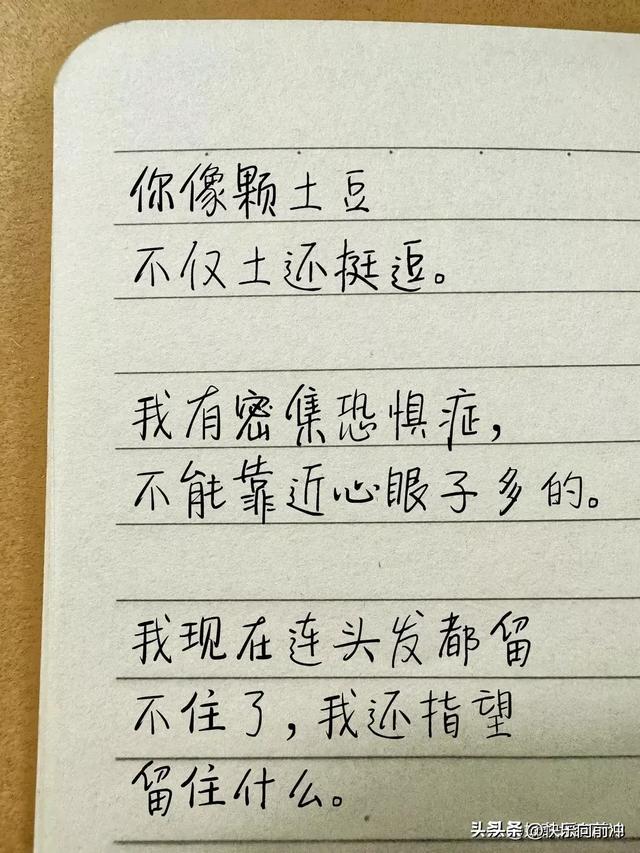 你像颗土豆
不仅土还挺逗。
我有密集恐惧症,
不能靠近心眼子多的。
我现在连头发都留
不住了,我还指望
留住什么。
头条@快乐向前冲